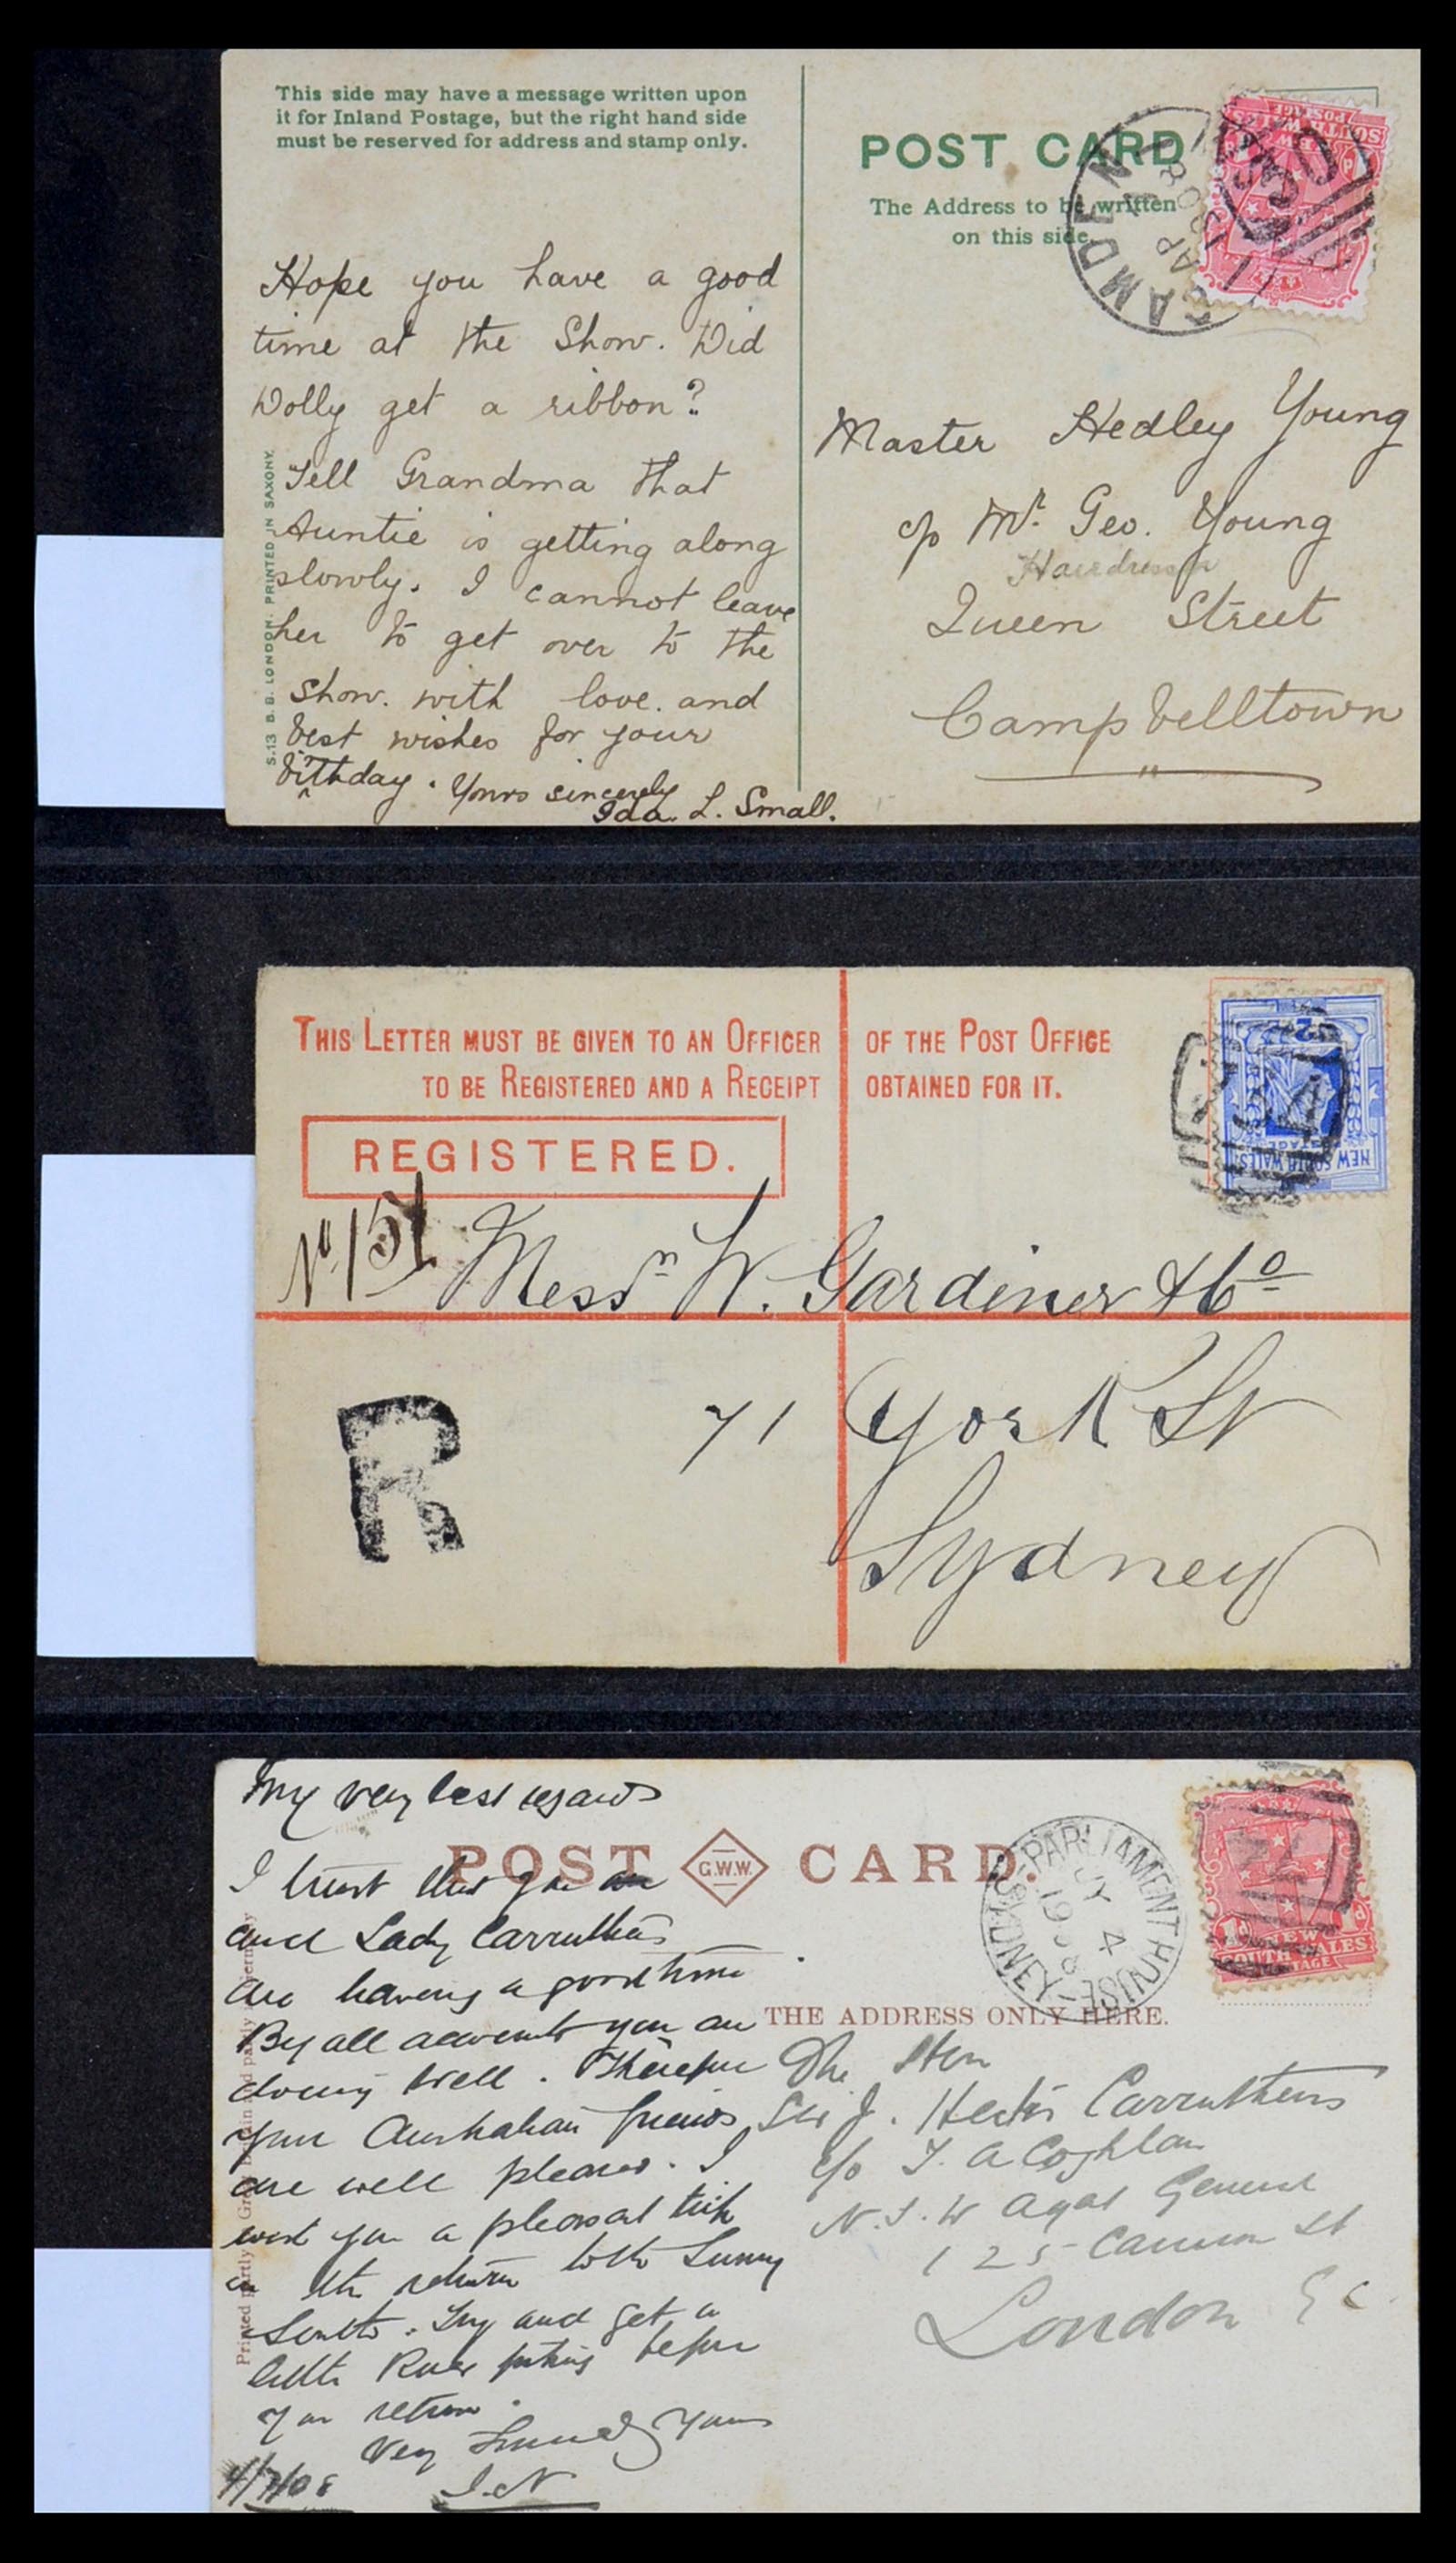 This side may have a message written upon
it for Inland Postage, but the right hand side
must be reserved for address and stamp only.
Hope you have a good
time at the Show. Did
Dolly get a ribbon?
Tell Grandma that
Auntie is getting along
slowly. I cannot leave
her to get over to the
Show. with love. and
best wishes for your
bithday. Yours sincerely
Ida. L. Small.
S.13 B.B. LONDON. PRINTED IN SAXONY.
POST CARD
The Address to be written
on this side.
CAMDEN
AP
08
Master Hedley Young
c/o Mr. Geo. Young
Hairdresser
Queen Street
Campbelltown
THIS LETTER MUST BE GIVEN TO AN OFFICER OF THE POST OFFICE
TO BE REGISTERED AND A RECEIPT OBTAINED FOR IT.
REGISTERED.
NEW SOUTH WALES
No 151
Messrs W. Gardiner & Co
71 York St
Sydney
R
My very best regards
POST G.W.W. CARD.
I trust that you are
and Lady Carruthers
are having a good time
By all accounts you are
doing well. Therefore
your Australian friends
are well pleased. I
wish you a pleasant trip
on the return to the Sunny
South. Try and get a
little River fishing before
your return.
Very Sincerely Yours
J.N
4/7/08
PARLIAMENT HOUSE-SYDNEY
JY 4
1908
1d 1d
NEW
SOUTH WALES
POSTAGE
THE ADDRESS ONLY HERE.
The Hon
Sir J. Hector Carruthers
c/o T. A Coghlan
N.S.W Agent General
125 Cannon St
London E C